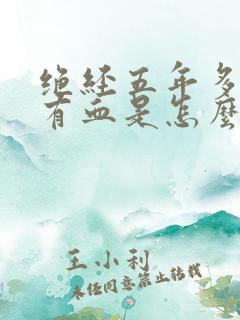 绝经五年多
有血是怎麽
王小利
未经同意禁止转载